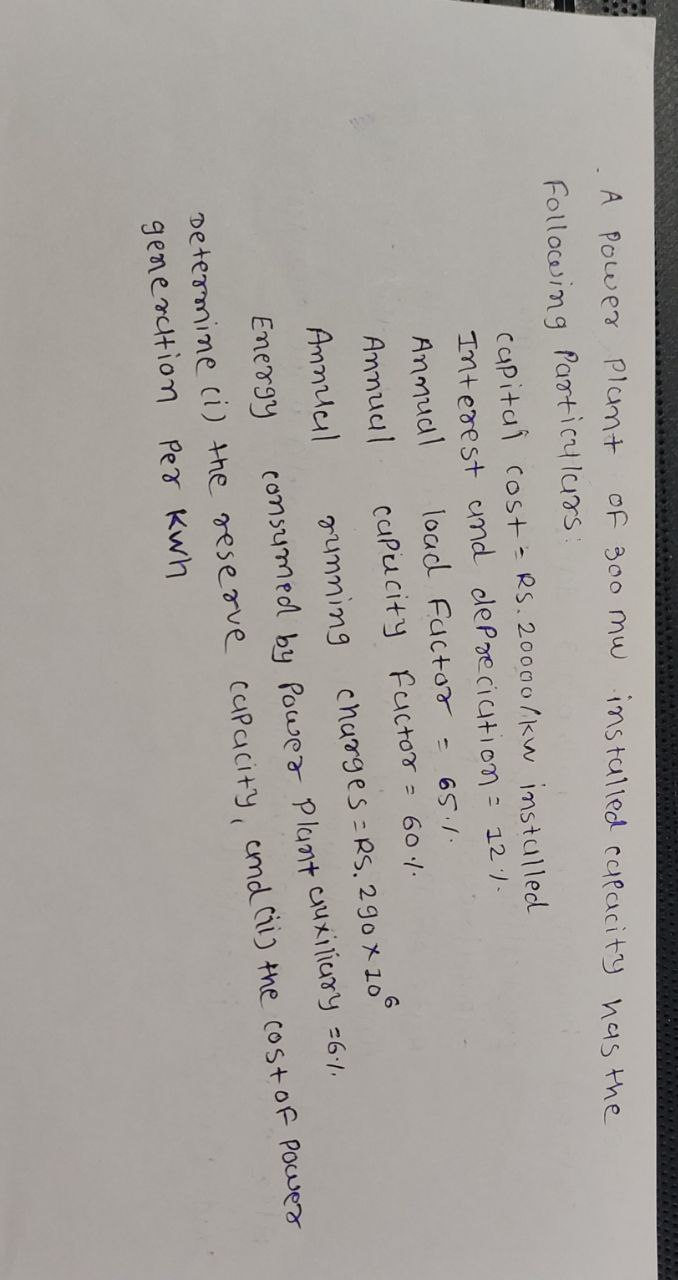 . A Power Plant of 300 mw installed capacity has the
Following Particulars:
Capital cost = RS. 20000/kw installed
Interest and depreciation = 12%.
Annual load Factor = 65%.
Annual capacity Factor = 60%.
Annual running charges = RS. 290 x 10^6
Energy consumed by Power Plant auxiliary = 6%.
Determine (i) the reserve capacity, and (ii) the cost of Power
generation Per Kwh